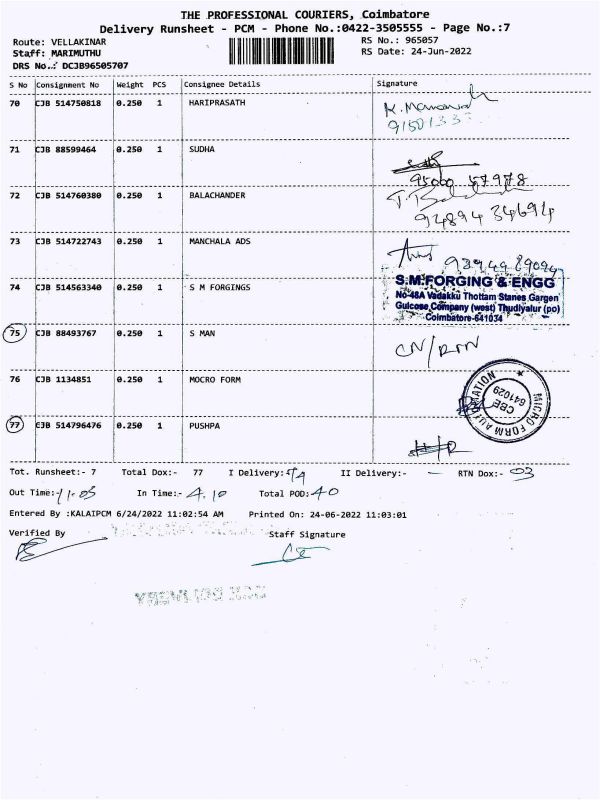 THE PROFESSIONAL COURIERS, Coimbatore
Delivery Runsheet - PCM - Phone No.:0422-3505555 - Page No.:7
Route: VELLAKINAR
RS No.: 965057
Staff: MARIMUTHU
RS Date: 24-Jun-2022
DRS No..: DCJB96505707
S No Consignment No Weight PCS Consignee Details Signature
70 CJB 514750818 0.250 1 HARIPRASATH
71 CJB 88599464 0.250 1 SUDHA
95000 57978
72 CJB 514760380 0.250 1 BALACHANDER
94894 34694
73 CJB 514722743 0.250 1 MANCHALA ADS
74 CJB 514563340 0.250 1 S M FORGINGS
S.M.FORGING & ENGG
No-48A Vadakku Thottam Stanes Gargen
Gulcose Company (west) Thudiyalur (po)
Coimbatore-641034
75 CJB 88493767 0.250 1 S MAN
CN/RTN
76 CJB 1134851 0.250 1 MOCRO FORM
MICRO FORM AUTOMATION
CBE
641029
77 CJB 514796476 0.250 1 PUSHPA
Tot. Runsheet:- 7 Total Dox:- 77 I Delivery:- 74 II Delivery:- — RTN Dox:- 03
Out Time:- 11.05 In Time:- 4.10 Total POD: 40
Entered By :KALAIPCM 6/24/2022 11:02:54 AM Printed On: 24-06-2022 11:03:01
Verified By
Staff Signature